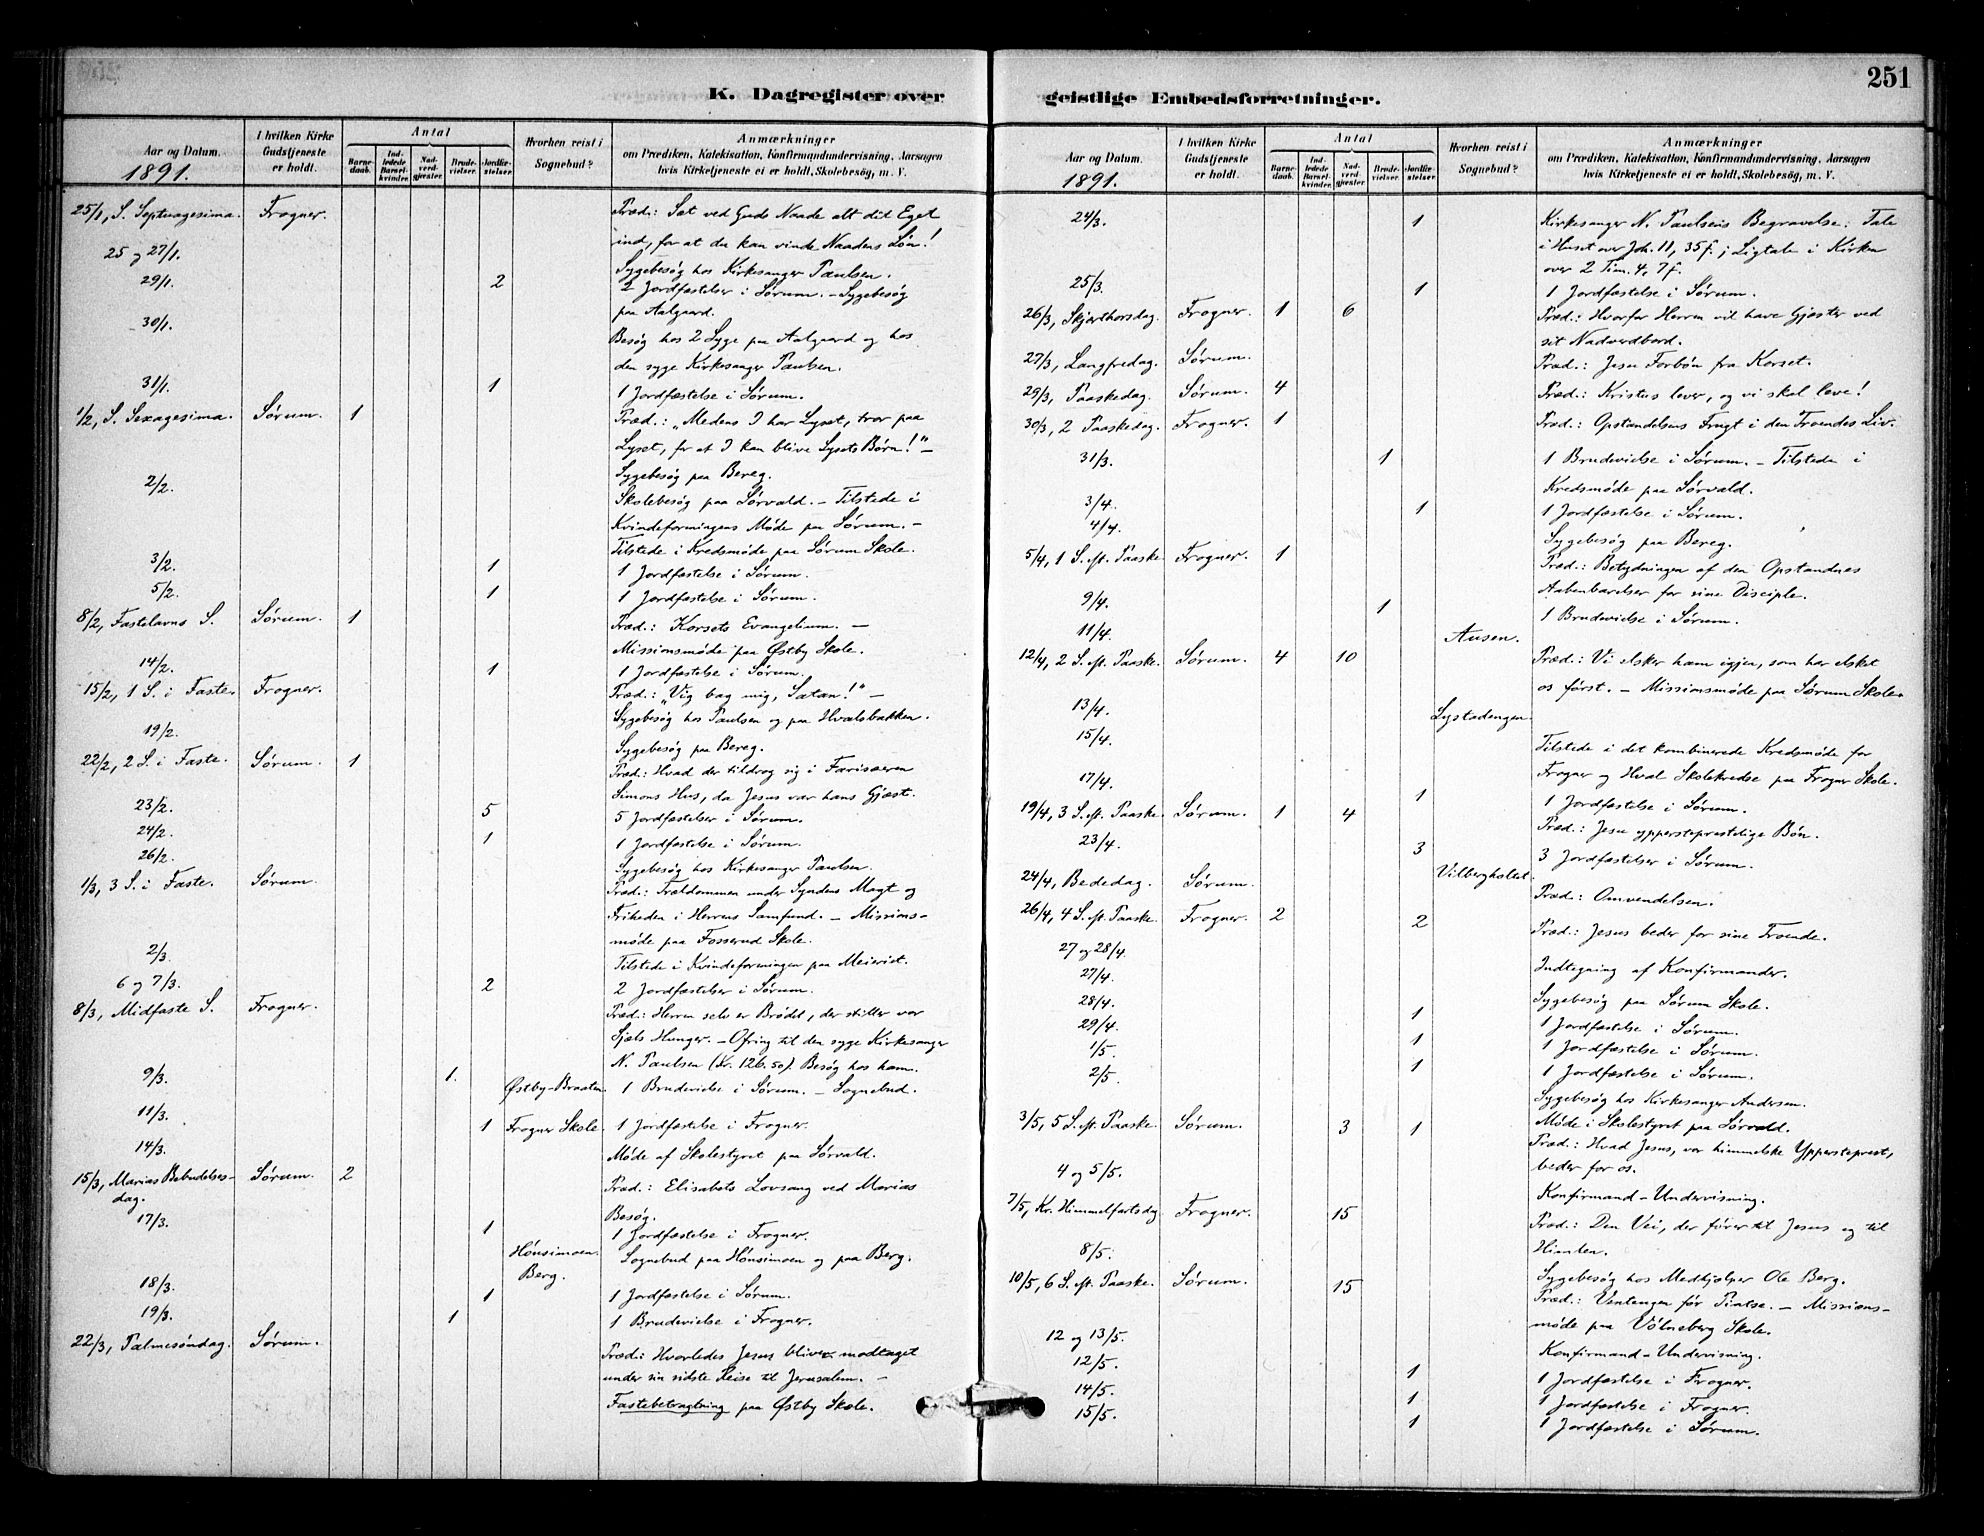 251
K. Dagregister over
geistlige Embedsforretninger.
Aar og Datum.
1891.
I hvilken Kirke Gudstjeneste er holdt.
Antal
Barnedaab.
Indledede Barselkvinder.
Nadverdgjæster.
Brudevielser.
Jordfæstelser.
Hvorhen reist i Sognebud?
Anmærkninger
om Prædiken, Katekisation, Konfirmandundervisning, Aarsagen
hvis Kirketjeneste ei er holdt, Skolebesøg, m. V.
25/1, S. Septuagesima. Frogner. Præd.: Sæt ved Guds Naade alt dit Eget
ind, for at du kan vinde Naadens Løn!
25 og 27/1. Sygebesøg hos Kirkesanger Paulsen.
29/1. 2 2 Jordfæstelser i Sørum. - Sygebesøg
paa Aalgaard.
30/1. Besøg hos 2 Syge paa Aalgaard og hos
den syge Kirkesanger Paulsen.
31/1. 1 1 Jordfæstelse i Sørum.
1/2, S. Sexagesima. Sørum. 1 Præd.: „Medens I har Lyset, tror paa
Lyset, for at I kan blive Lysets Børn!" -
Sygebesøg paa Bereg.
2/2. Skolebesøg paa Sørvald. - Tilstede i
Kvindeforeningens Møde paa Sørum. -
Tilstede i Kredsmøde paa Sørum Skole.
3/2. 1 1 Jordfæstelse i Sørum.
5/2. 1 1 Jordfæstelse i Sørum.
8/2, Fastelavns S. Sørum. 1 Præd.: Korsets Evangelium. -
Missionsmøde paa Østby Skole.
14/2. 1 1 Jordfæstelse i Sørum.
15/2, 1 S. i Faste. Frogner. Præd.: „Vig bag mig, Satan!" -
Sygebesøg hos Paulsen og paa Hvalsbakken.
19/2. Sygebesøg paa Bereg.
22/2, 2 S. i Faste. Sørum. 1 Præd.: Hvad der tildrog sig i Farisæeren
Simons Hus, da Jesus var hans Gjæst.
23/2. 5 5 Jordfæstelser i Sørum.
24/2. 1 1 Jordfæstelse i Sørum.
26/2. Sygebesøg hos Kirkesanger Paulsen.
1/3, 3 S. i Faste. Sørum. Præd.: Trældommen under Syndens Magt og
Friheden i Herrens Samfund. - Missions-
møde paa Fosserud Skole.
2/3. Tilstede i Kvindeforeningen paa Meieriet.
6 og 7/3. 2 2 Jordfæstelser i Sørum.
8/3, Midfaste S. Frogner. Præd.: Herren selv er Brødet, der stiller vor
Sjæls Hunger. - Ofring til den syge Kirkesanger
N. Paulsen (Kr. 126.50). Besøg hos ham.
9/3. 1. Østby-Braaten 1 Brudevielse i Sørum. - Sognebud.
11/3. 1 Frogner Skole. 1 Jordfæstelse i Frogner.
14/3. Møde af Skolestyret paa Sørvald.
15/3, Marias Bebudelses-
dag. Sørum. 2 Præd.: Elisabets Lovsang ved Marias
Besøg.
17/3. 1 1 Jordfæstelse i Frogner.
Hønsimoen. Sognebud paa Hønsimoen og paa Berg.
Berg.
18/3. 1 1 Jordfæstelse i Sørum.
19/3. 1 1 Brudevielse i Frogner.
22/3, Palmesøndag. Sørum. Præd.: Hvorledes Jesus bliver modtaget
under sin sidste Reise til Jerusalem. -
Fastebetragtning paa Østby Skole.
Aar og Datum.
1891.
I hvilken Kirke Gudstjeneste er holdt.
Antal
Barnedaab.
Indledede Barselkvinder.
Nadverdgjæster.
Brudevielser.
Jordfæstelser.
Hvorhen reist i Sognebud?
Anmærkninger
om Prædiken, Katekisation, Konfirmandundervisning, Aarsagen
hvis Kirketjeneste ei er holdt, Skolebesøg, m. V.
24/3. 1 Kirkesanger N. Paulsens Begravelse: Tale
i Huset over Joh. 11, 35 f.; Ligtale i Kirken
over 2 Tim. 4, 7 f.
25/3. 1 1 Jordfæstelse i Sørum.
26/3, Skjærthorsdag. Frogner. 1 6 Præd.: Hvorfor Herren vil have Gjæster ved
sit Nadverdbord.
27/3, Langfredag. Sørum. Præd.: Jesu Forbøn fra Korset.
29/3, Paaskedag. Sørum. 4 Præd.: Kristus lever, og vi skal leve!
30/3, 2 Paaskedag. Frogner. 1 Præd.: Opstandelsens Frugt i den Troendes Liv.
31/3. 1 1 Brudevielse i Sørum. - Tilstede i
Kredsmøde paa Sørvald.
3/4. 1 1 Jordfæstelse i Sørum.
4/4. Sygebesøg paa Bereg.
5/4, 1 S. eft. Paaske. Frogner. 1 Præd.: Betydningen af den Opstandnes
Aabenbarelser for sine Disciple.
9/4. 1 1 Brudevielse i Sørum.
11/4. Ausen.
12/4, 2 S. eft. Paaske. Sørum. 4 10 Præd.: Vi elsker ham igjen, som har elsket
os først. - Missionsmøde paa Sørum Skole.
13/4. Lystadengen.
15/4. Tilstede i det kombinerede Kredsmøde for
Frogner og Hval Skolekredse paa Frogner Skole.
17/4. 1 1 Jordfæstelse i Sørum.
19/4, 3 S. eft. Paaske. Sørum. 1 4 Præd.: Jesu ypperstepræstelige Bøn.
23/4. 3 3 Jordfæstelser i Sørum.
24/4, Bededag. Sørum. Vilbergholtet. Præd.: Omvendelsen.
26/4, 4 S. eft. Paaske. Frogner. 2 2 Præd.: Jesus beder for sine Troende.
27 og 28/4. Indtegning af Konfirmander.
27/4. Sygebesøg paa Sørum Skole.
28/4. 1 1 Jordfæstelse i Sørum.
29/4. 1 1 Jordfæstelse i Sørum.
1/5. 1 1 Jordfæstelse i Sørum.
2/5. Sygebesøg hos Kirkesanger Andersen.
Møde i Skolestyret paa Sørvald.
3/5, 5 S. eft. Paaske. Sørum. 3 1 Præd.: Hvad Jesus, vor himmelske Ypperstepræst,
beder for os.
4 og 5/5. Konfirmand-Undervisning.
7/5, Kr. Himmelfartsdag Frogner. 15 Præd.: Den Vei, der fører til Jesus og til
Himlen.
8/5. Sygebesøg hos Medhjælper Ole Berg.
10/5, 6 S. eft. Paaske. Sørum. 15 Præd.: Ventetiden før Pintse. - Missions-
møde paa Vølneberg Skole.
12 og 13/5. Konfirmand-Undervisning.
12/5. 1 1 Jordfæstelse i Frogner.
14/5. 1 1 Jordfæstelse i Frogner.
15/5. 1 1 Jordfæstelse i Sørum.